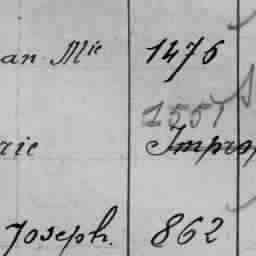 an Mie 1476
1557
rie Impro
Joseph. 862